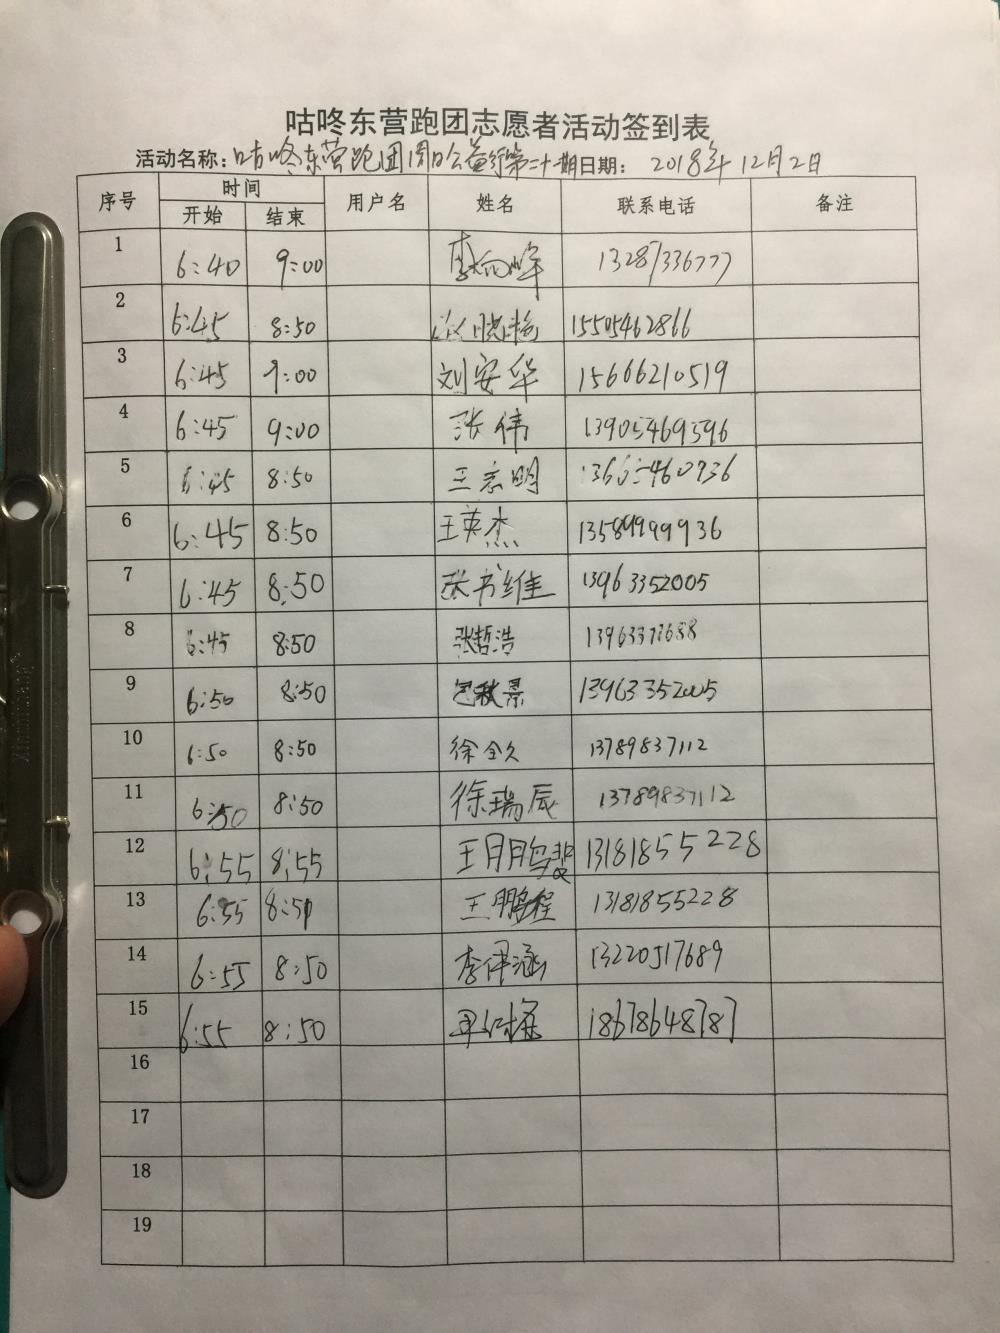 咕咚东营跑团志愿者活动签到表
活动名称：咕咚东营跑团周日公益行第二十期 日期： 2018年12月2日
序号 时间 用户名 姓名 联系电话 备注
开始 结束
1 6:40 9:00 李向峰 13287336777
2 6:45 8:50 15505462866
3 6:45 9:00 刘安华 15666210519
4 6:45 9:00 张伟 13905469596
5 6:45 8:50 王志明
6 6:45 8:50 王英杰 13589999936
7 6:45 8:50 张书维 13963352005
8 6:45 8:50 张哲浩
9 6:50 8:50 13963352005
10 6:50 8:50 徐全久 13789837112
11 6:50 8:50 徐瑞辰 13789837112
12 6:55 8:55 王月鹏 13181855228
13 6:55 8:50 王鹏程 13181855228
14 6:55 8:50 李伊涵 13220517689
15 6:55 8:50 18678648787
16
17
18
19